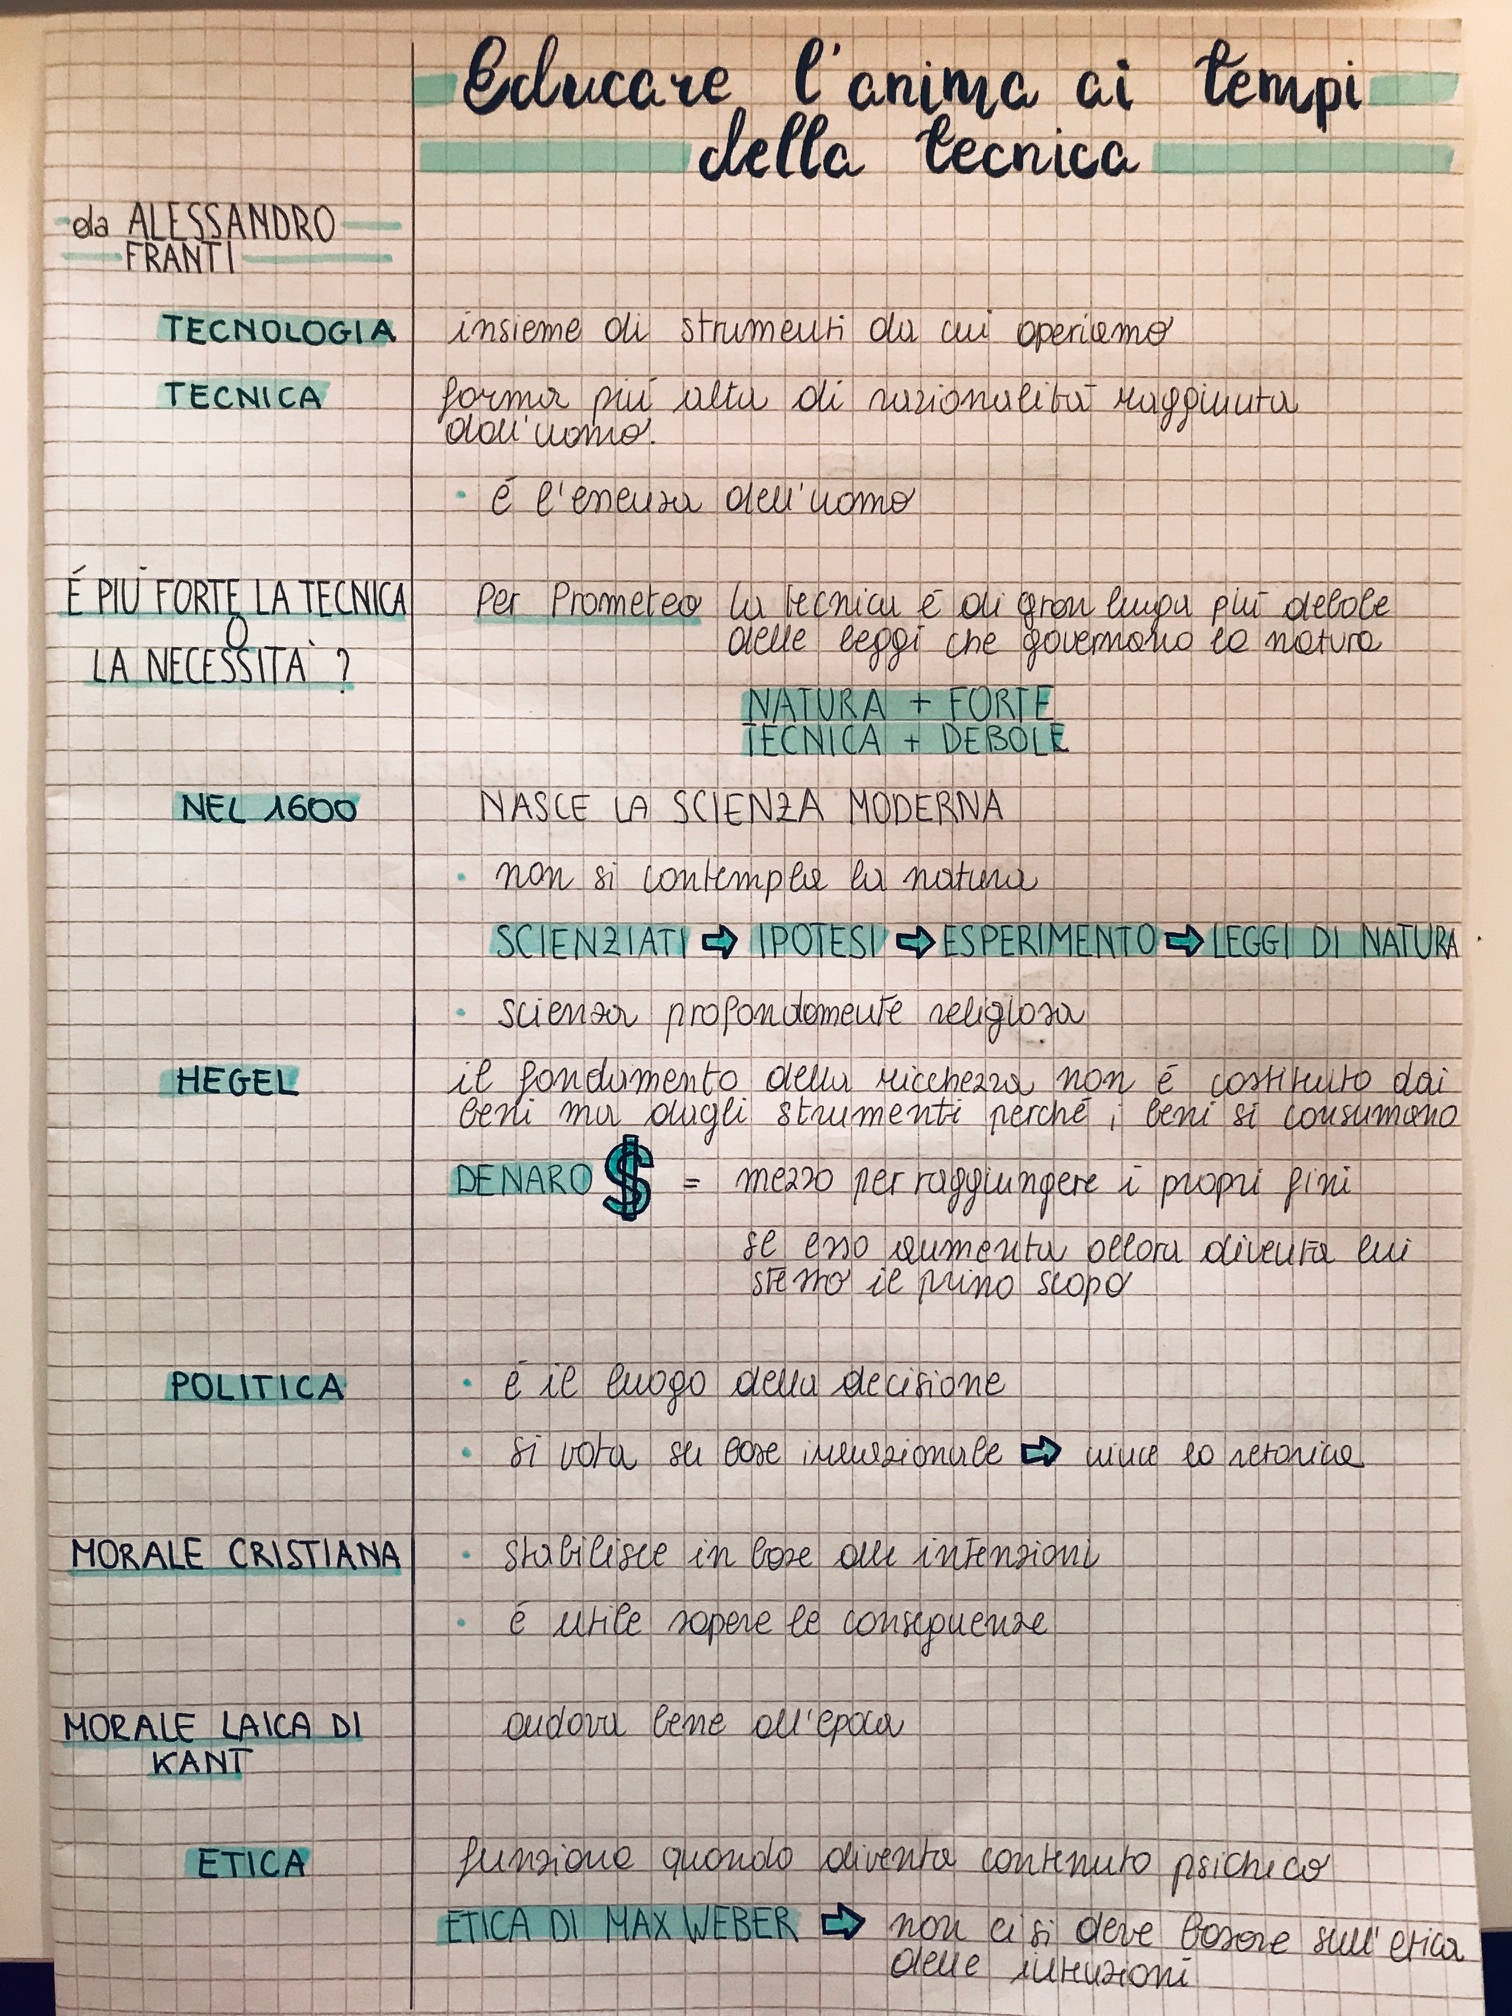 Educare l'anima ai tempi
della tecnica
da ALESSANDRO
FRANTI
TECNOLOGIA
insieme di strumenti da cui operiamo
TECNICA
forma più alta di razionalità raggiunta
dall'uomo.
• é l'essenza dell'uomo
É PIÙ FORTE LA TECNICA
O
LA NECESSITÀ ?
Per Prometeo la tecnica é di gran lunga più debole
delle leggi che governano la natura
NATURA + FORTE
TECNICA + DEBOLE
NEL 1600
NASCE LA SCIENZA MODERNA
• non si contempla la natura
SCIENZIATI ⇨ IPOTESI ⇨ ESPERIMENTO ⇨ LEGGI DI NATURA
• scienza profondamente religiosa
HEGEL
il fondamento della ricchezza non é costituto dai
beni ma dagli strumenti perché i beni si consumano
DENARO $ = mezzo per raggiungere i propri fini
se esso aumenta allora diventa lui
stesso il primo scopo
POLITICA
• é il luogo della decisione
• si vota su base irrazionale ⇨ vince la retorica
MORALE CRISTIANA
• stabilisce in base alle intenzioni
• é utile sapere le conseguenze
MORALE LAICA DI
KANT
andava bene all'epoca
ETICA
funziona quando diventa contenuto psichico
ETICA DI MAX WEBER ⇨ non ci si deve basare sull'etica
delle intenzioni